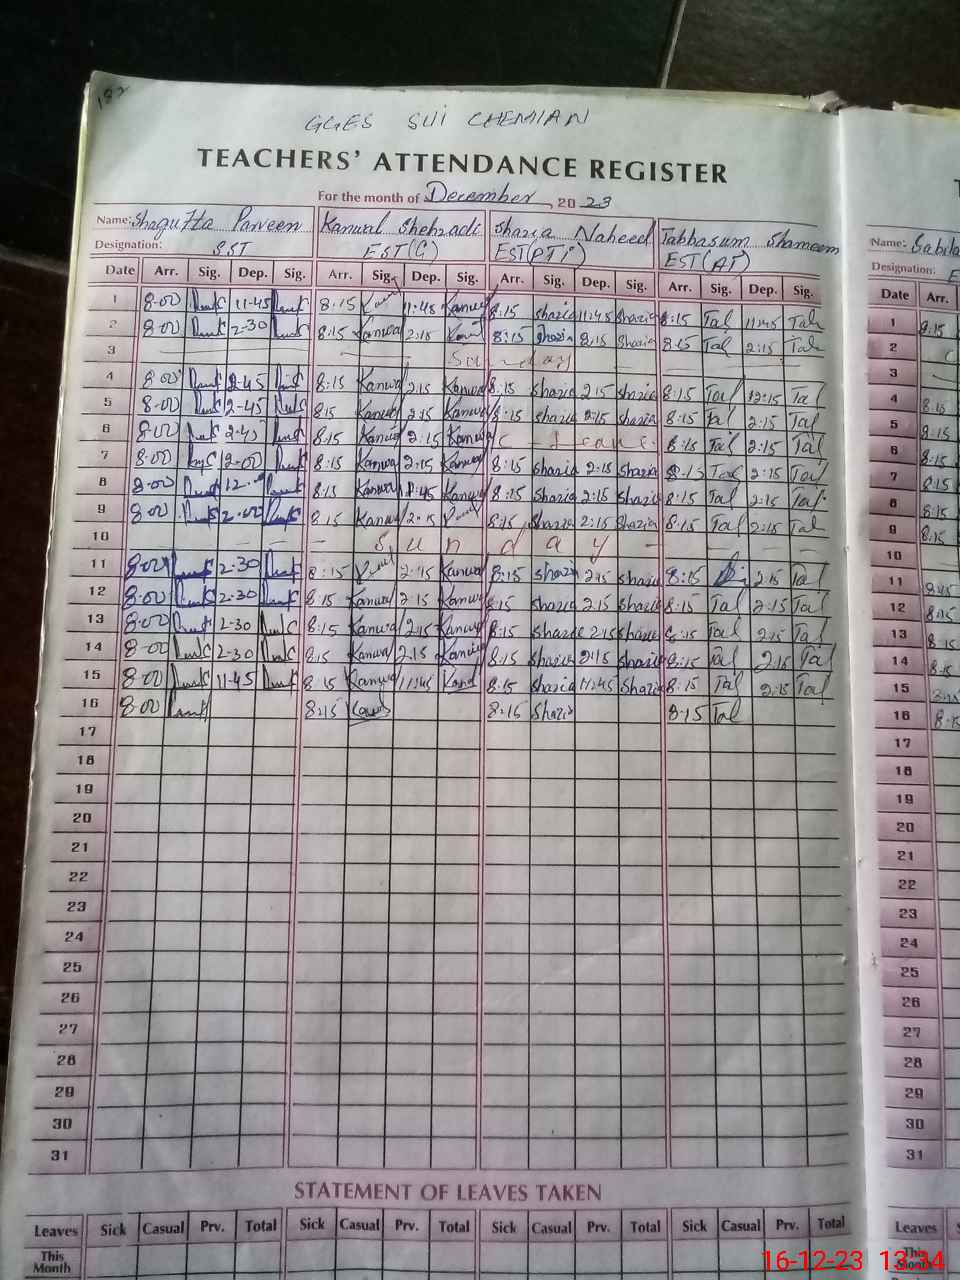 182
GGES SUI CHEMIAN
TEACHERS' ATTENDANCE REGISTER
For the month of December, 2023
Name: Shagufta Parveen Kanwal Shehzadi Shazia Naheed Tabbasum Shameem
Designation: SST EST(G) EST(PTi) EST(AT)
Date Arr. Sig. Dep. Sig. Arr. Sig. Dep. Sig. Arr. Sig. Dep. Sig. Arr. Sig. Dep. Sig.
1 8-00 11-45 8:15 11:45 Kanwal 8:15 Shazia 11:45 Shazia 8:15 Tal 11:45 Tal
2 8-00 2-30 8:15 Kanwal 2:15 8:15 Shazia 2:15 Shazia 8:15 Tal 2:15 Tal
3 Sunday
4 8-00 2-45 8:15 Kanwal 2:15 Kanwal 8:15 Shazia 2:15 Shazia 8:15 Tal 12:15 Tal
5 8-00 2-45 8:15 Kanwal 2:15 Kanwal 8:15 Shazia 2:15 Shazia 8:15 Tal 2:15 Tal
6 8-00 2-45 8:15 Kanwal 2:15 Kanwal C - Leave. 8:15 Tal 2:15 Tal
7 8-00 2-00 8:15 Kanwal 2:15 Kanwal 8:15 Shazia 2:15 Shazia 8:15 Tal 2:15 Tal
8 8-00 8:15 Kanwal Kanwal 8:15 Shazia 2:15 Shazia 8:15 Tal 2:15 Tal
9 8-00 2-00 8:15 Kanwal 2:15 8:15 Shazia 2:15 Shazia 8:15 Tal 2:15 Tal
10 Sunday
11 8-00 2-30 8:15 2:15 Kanwal 8:15 Shazia 2:15 Shazia 8:15 2:15 Tal
12 8-00 2-30 8:15 Kanwal 2:15 Kanwal 8:15 Shazia 2:15 Shazia 8:15 Tal 2:15 Tal
13 8-00 2-30 8:15 Kanwal 2:15 Kanwal 8:15 Shazia 2:15 Shazia 8:15 Tal 2:15 Tal
14 8-00 2-30 8:15 Kanwal 2:15 Kanwal 8:15 Shazia 2:15 Shazia 8:15 Tal 2:15 Tal
15 8-00 11-45 8:15 Kanwal 11:45 8:15 Shazia 11:45 Shazia 8:15 Tal 2:15 Tal
16 8-00 8:15 8:15 Shazia 8:15 Tal
17
18
19
20
21
22
23
24
25
26
27
28
29
30
31
STATEMENT OF LEAVES TAKEN
Leaves Sick Casual Prv. Total Sick Casual Prv. Total Sick Casual Prv. Total Sick Casual Prv. Total
This Month
Name:
Designation:
Date Arr.
1 8:15
2
3
4 8:15
5 8:15
6 8:15
7 8:15
8 8:15
9 8:15
10
11 8:15
12 8:15
13 8:15
14 8:15
15 8:15
16 8:15
17
18
19
20
21
22
23
24
25
26
27
28
29
30
31
Leaves
This Month
16-12-23 13:34